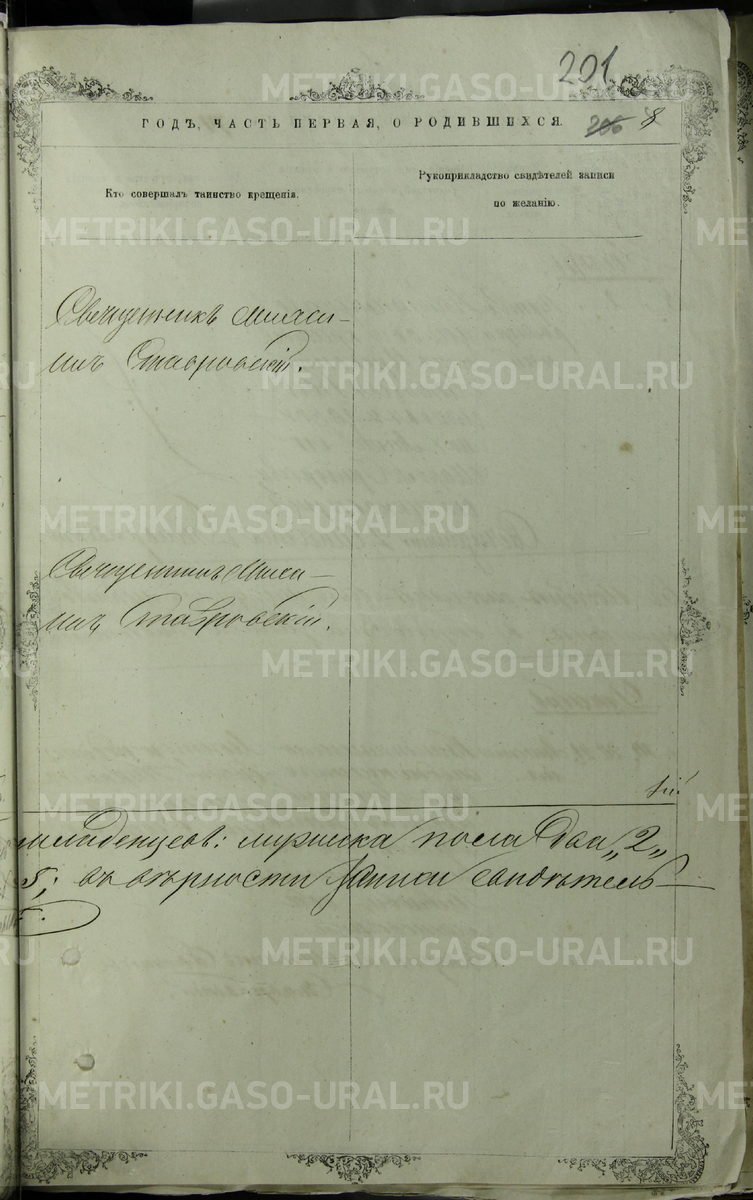 201
ГОДЪ, ЧАСТЬ ПЕРВАЯ, О РОДИВШИХСЯ.
206 8
Кто совершалъ таинство крещенія.
Рукоприкладство свидѣтелей записи
по желанію.
Священникъ Миса-
илъ Ставровскій.
Священникъ Миса-
илъ Ставровскій.
младенцевъ: мужска пола два „2„
5; въ вѣрности записи свидѣтель-
METRIKI.GASO-URAL.RU